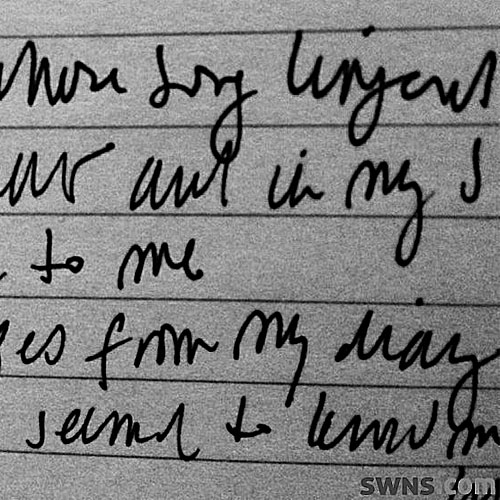 whose song lingered
ear and in my s
to me
es from my diary
seemed to know m
SWNS.com